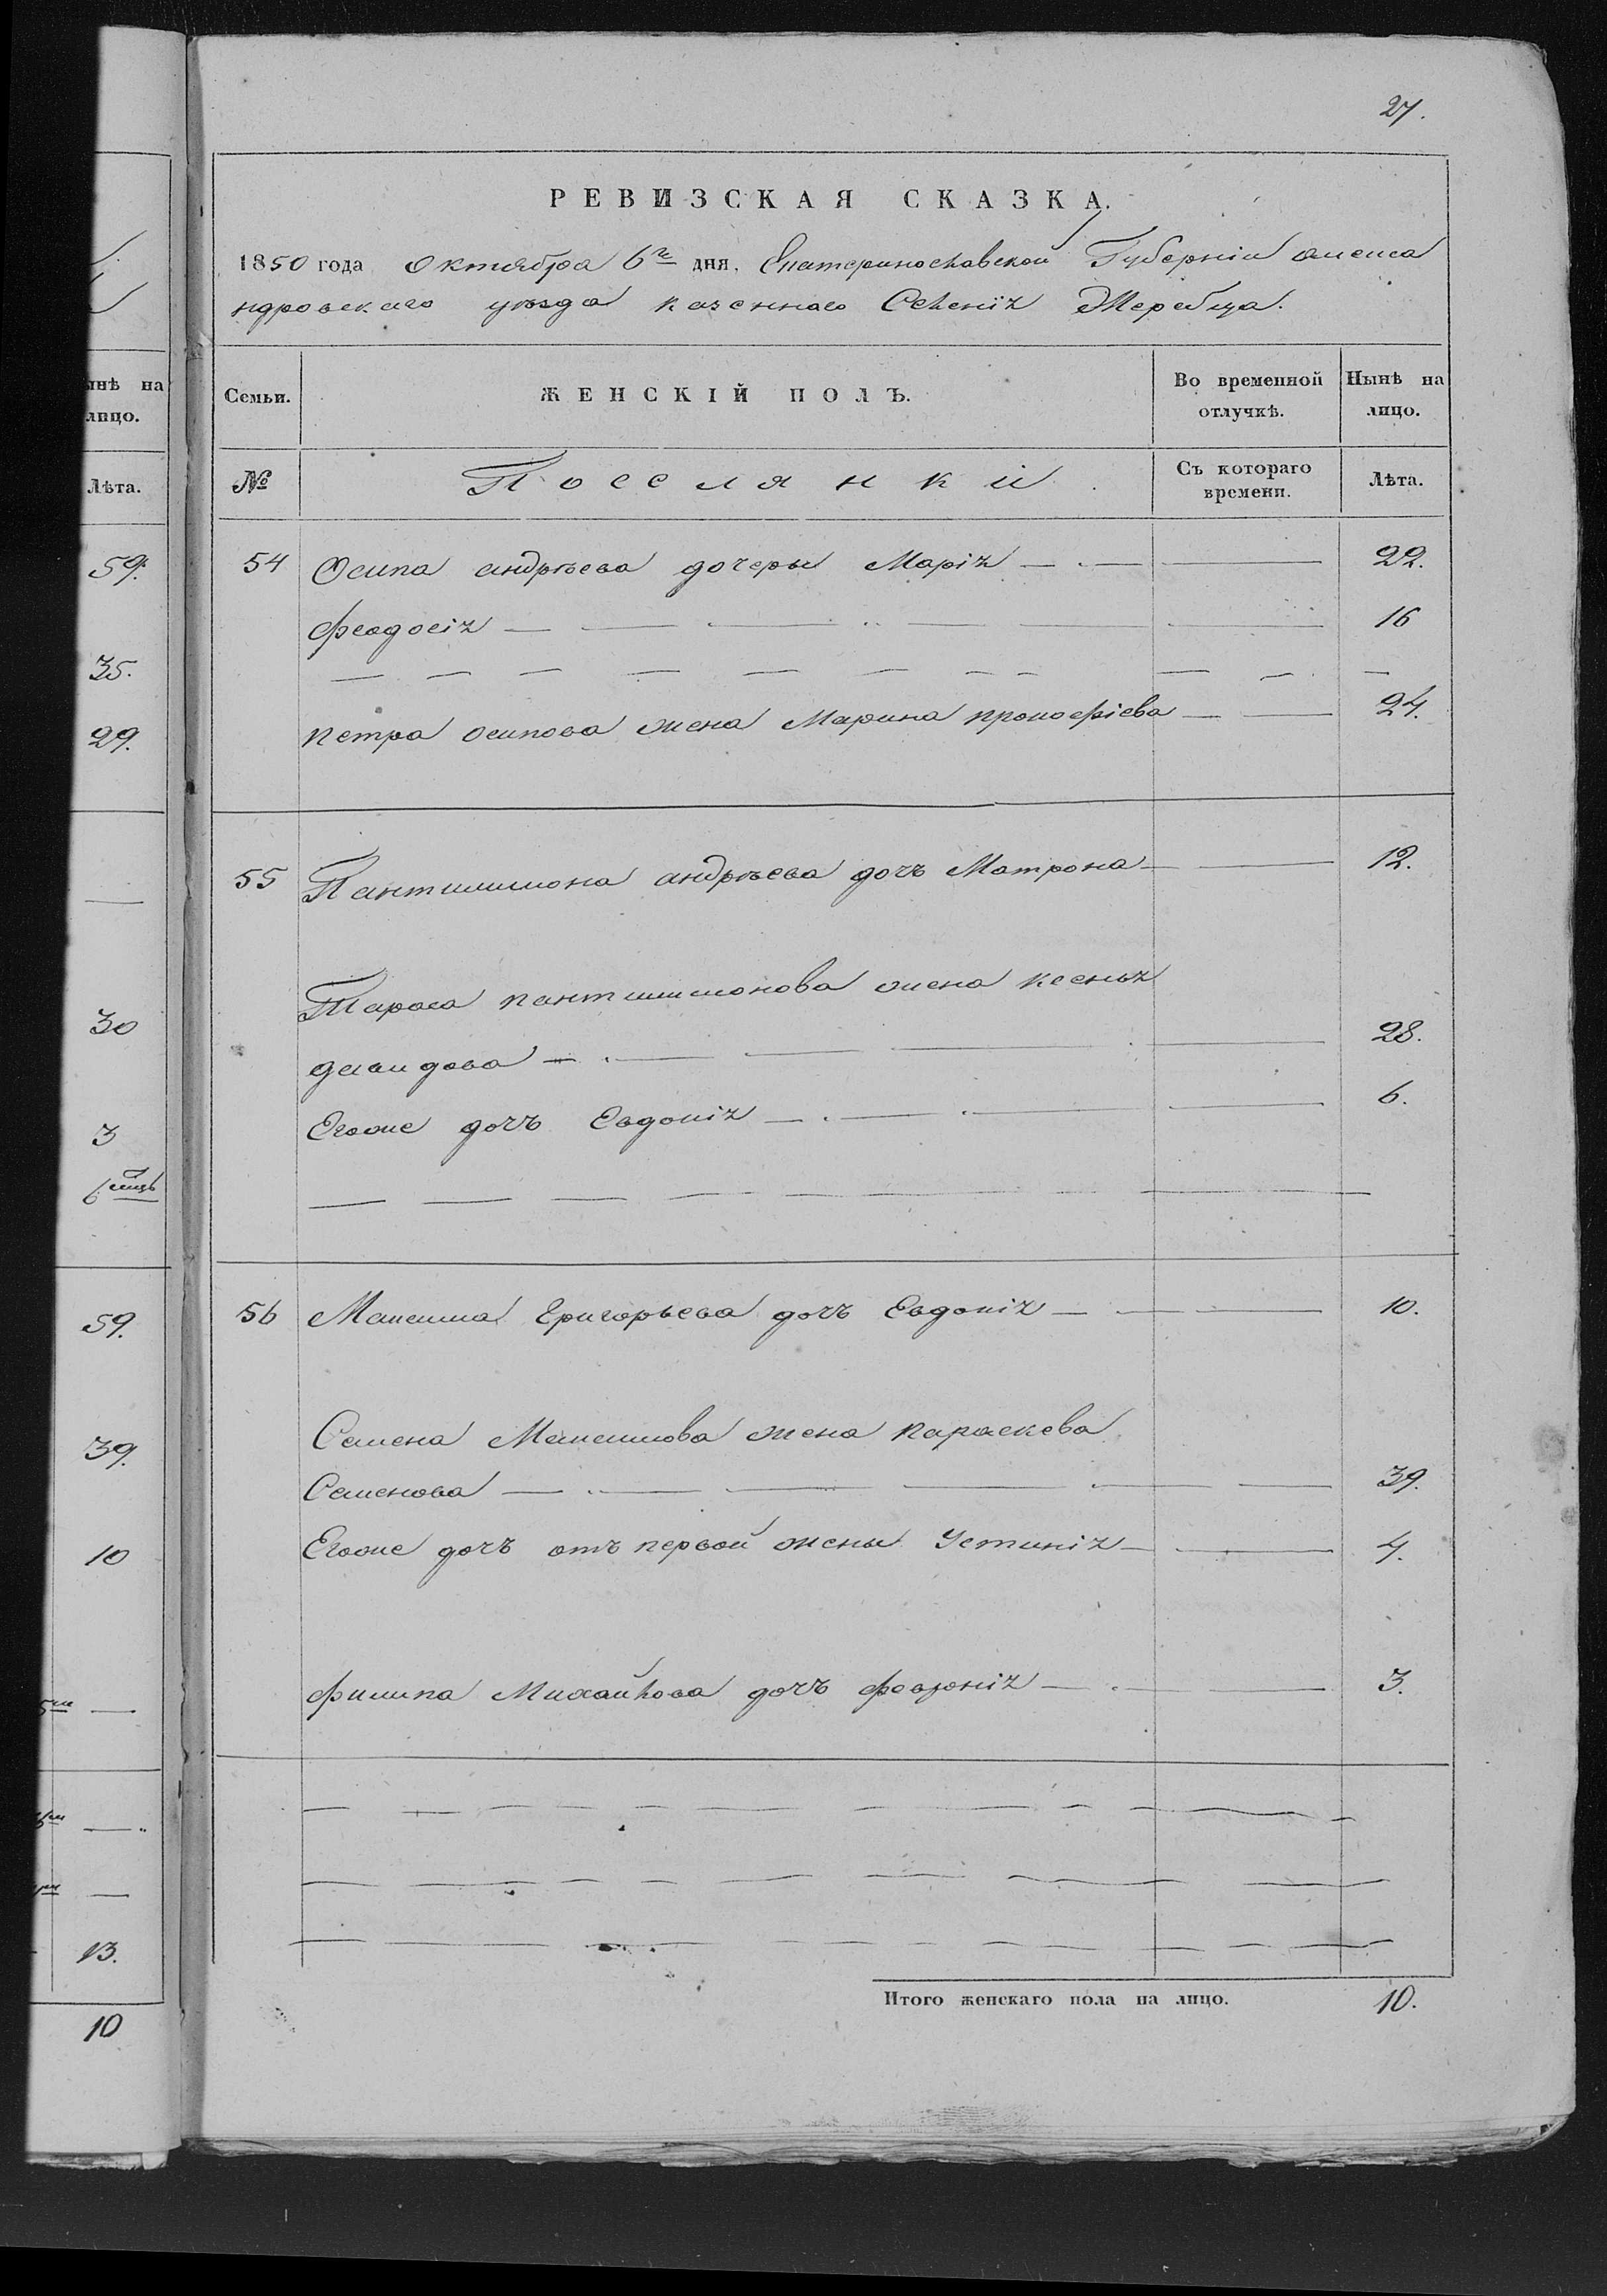 27.
РЕВИЗСКАЯ СКАЗКА.
1850 года Октября 6го дня. Екатеринославской Губерніи алекса
ндровскаго уѣзда казеннаго Селенія Жеребца.
инѣ на
лицо.
Семьи.
ЖЕНСКІЙ ПОЛЪ.
Во временной
отлучкѣ.
Нынѣ на
лицо.
Лѣта.
№
Поселянки
Съ котораго
времени.
Лѣта.
59.
54 Осипа андрѣева дочеры Марія 22.
феодосія 16
35.
29.
петра осипова жена Марина прокофіева 24.
55 Пантилимона андрѣева дочъ Матрона 12.
Тараса пантилимонова жена ксенья
30
давидова 28.
Егоже дочъ Евдокія 6.
3
6
59.
56 Максима Григорьева дочъ Евдокія 10.
39.
Семена Максимова жена параскева
Семенова 39.
Егоже дочъ отъ первой жены Устинія 4.
10
филипа Михайлова дочъ февронія 3.
13.
Итого женскаго пола на лицо. 10.
10